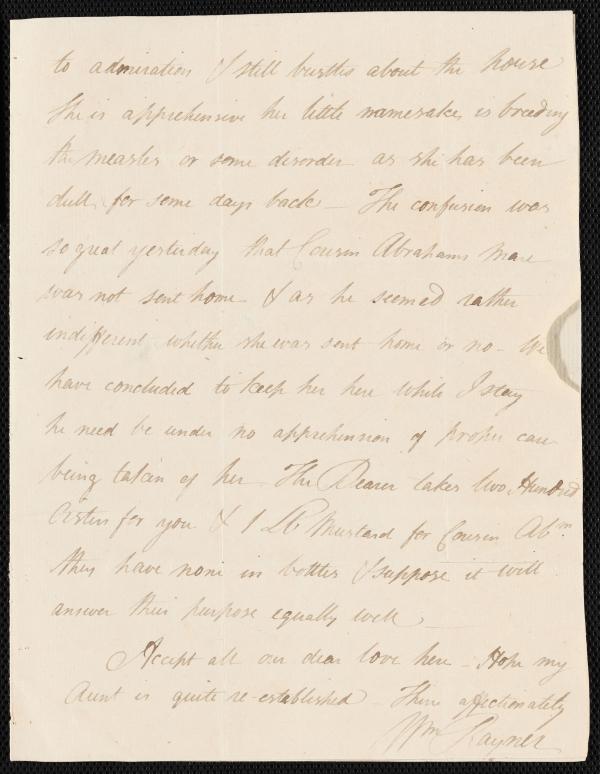 to admiration & still bustles about the house
She is apprehensive her little namesake, is breeding
the measles or some disorder as she has been
dull, for some days back — The confusion was
so great yesterday that Cousin Abrahams Mare
was not sent home & as he seemed rather
indifferent whether she was sent home or no - We
have concluded to keep her here while I stay
he need be under no apprehension of proper care
being taken of her — The Bearer takes two Hundred
for you & 1 Lb Mustard for Cousin Abm
they have none in bottles & suppose it will
answer their purpose equally well —
Accept all our dear love here - Hope my
Aunt is quite re-established — Thine affectionately
Wm Rayner